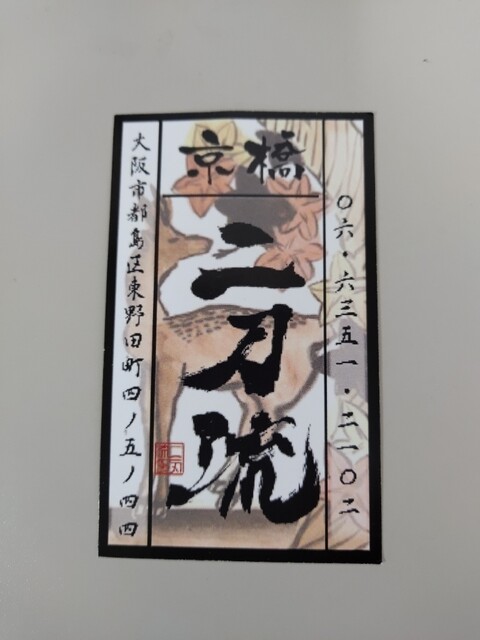 〇六・六三五一・二一〇二
京橋
二刀流
大阪市都島区東野田町四ノ五ノ四四